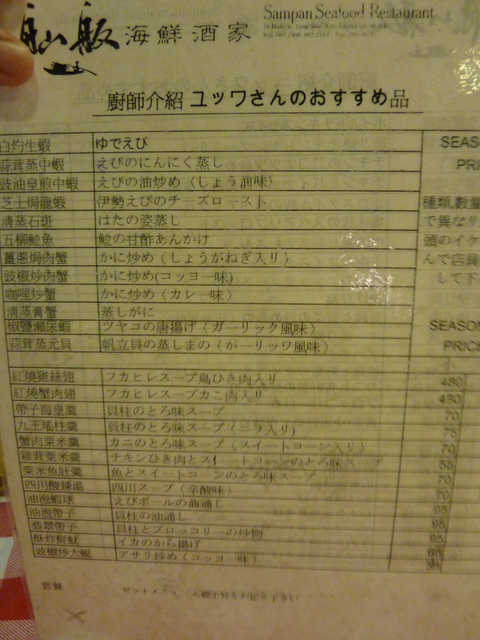 舢舨 海鮮酒家 Sampan Seafood Restaurant
廚師介紹 ユッワさんのおすすめ品
白灼生蝦 ゆでえび SEASO
蒜茸蒸中蝦 えびのにんにく蒸し PRI
豉油皇煎中蝦 えびの油炒め〈しょう油味〉
芝士焗龍蝦 伊勢えびのチーズロースト 種類,數量
清蒸石斑 はたの姿蒸し で異なリ
五柳鯰魚 鯰の甘酢あんかけ 頭のイケ
薑蔥焗肉蟹 かに炒め（しょうがねぎ入り） んで店員
豉椒炒肉蟹 かに炒め(コッヨー味) して下
咖哩炒蟹 かに炒め（カレー味）
清蒸膏蟹 蒸しがに
椒鹽瀨尿蝦 ツヤコの唐揚げ（ガーリック風味） SEASON
蒜茸蒸元貝 帆立貝の蒸しまの（かーリッワ風味） PRICE
小
紅燒雞絲翅 フカヒレスープ鳥ひき肉入り 480
紅燒蟹肉翅 フカヒレスープかこ肉入り 480
帶子海皇羹 貝柱のとろ味スープ 70
九王瑤柱羹 貝柱のとろ味スープ（ニラ入り）
蟹肉粟米羹 カニのとろみスープ（スイートコーン入り） 70
雞茸粟米羹 チキンひき肉とスイートコーンのとろ味ス
粟米魚肚羹 魚とスイートコーンのとろ味スープ 70
四川酸辣湯 四川スープ（辛酸味） 70
油泡蝦球 えびボールの油通し 95
油泡帶子 貝柱の油通し 95
翡翠帶子 貝柱とブロッコリーの炒物 95
酥炸鮮魷 イカのから揚げ
豉椒炒大蜆 アサリ炒め（コッョー味）
套餐 セットメニュー